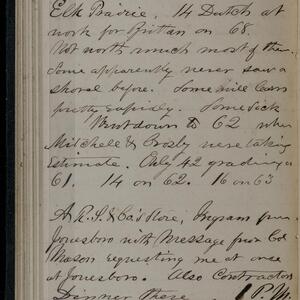 Elk Prairie. 14 Dutch at
work for Brittan on 68.
Not worth much most of them
Some apparently never saw a
shovel before. Some will learn
pretty rapidly. Some sick
Went down to 62 when
Mitchell & Crosby were taking
Estimate. Only 42 grading on
61. 14 on 62. 16 on 63
A. R. J. & Co's Store, from
Jonesboro with Message from Col
Mason requesting me at once
at Jonesboro. Also Contractors
Dinner there